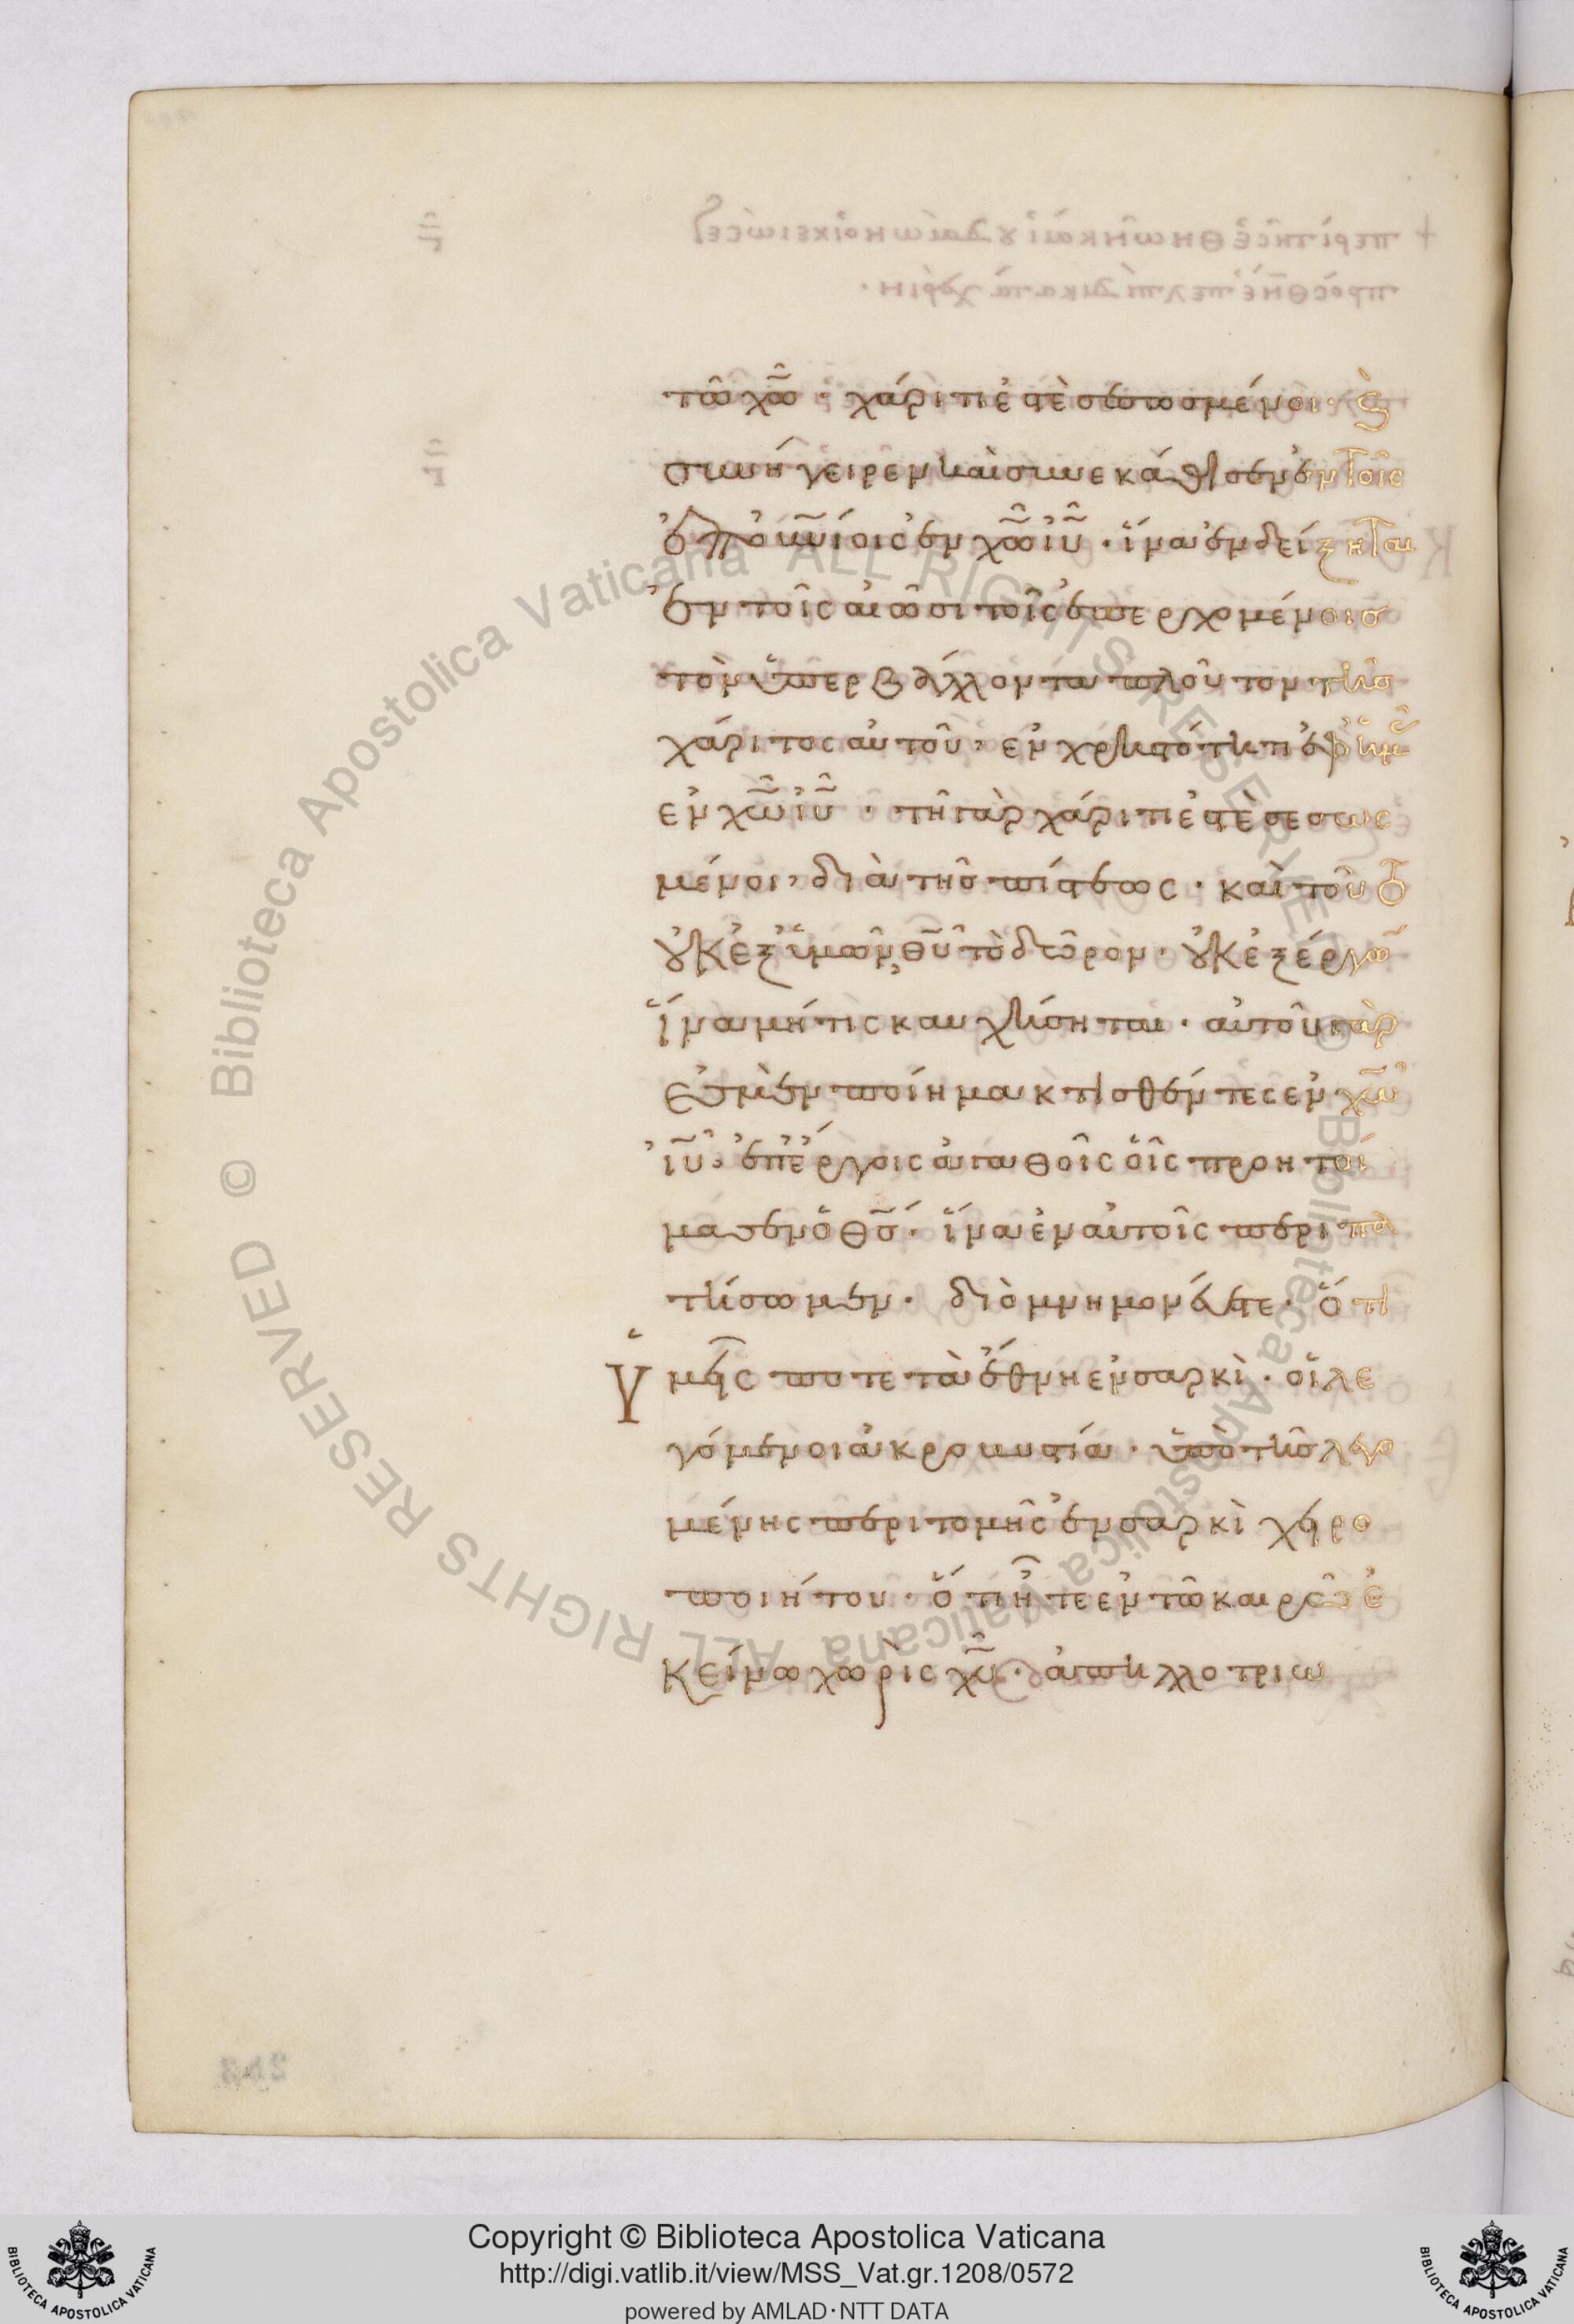 τῶ χῶ· χάριτί ἐστε σεσωσμένοι· καὶ
συνήγειρεν καὶ συνεκάθισεν ἐν τοῖς
ἐπουρανίοις ἐν χῶ ἰῦ· ἵνα ἐνδείξηται
ἐν τοῖς αἰῶσι τοῖς ἐπερχομένοις
τὸν ὑπερβάλλοντα πλοῦτον τῆς
χάριτος αὐτοῦ, ἐν χρηστότητι ἐφ ἡμᾶς
ἐν χῶ ἰῦ· τῆ γὰρ χάριτί ἐστε σεσωσ
μένοι, διὰ τῆς πίστεως· καὶ τοῦτο
οὐκ ἐξ ὑμῶν, θῦ τὸ δῶρον· οὐκ ἐξ ἔργων
ἵνα μή τις καυχήσηται· αὐτοῦ γάρ
ἐσμεν ποίημα κτισθέντες ἐν χῶ
ἰῦ, ἐπὶ ἔργοις ἀγαθοῖς οἷς προητοί
μασεν ὁ θς· ἵνα ἐν αὐτοῖς περιπα
τήσωμεν· διὸ μνημονεύετε· ὅτι
ὑμεῖς ποτε τὰ ἔθνη ἐν σαρκὶ· οἱ λε
γόμενοι ἀκροβυστία· ὑπὸ τῆς λεγο
μένης περιτομῆς ἐν σαρκὶ χειρο
ποιήτου· ὅτι ἦτε ἐν τῶ καιρῶ ἐ
κείνω χωρὶς χῦ· ἀπηλλοτριω
© Biblioteca Apostolica Vaticana ALL RIGHTS RESERVED © Biblioteca Apostolica Vaticana ALL RIGHTS RESERVED
Copyright © Biblioteca Apostolica Vaticana
http://digi.vatlib.it/view/MSS_Vat.gr.1208/0572
powered by AMLAD·NTT DATA
BIBLIOTECA APOSTOLICA VATICANA
BIBLIOTECA APOSTOLICA VATICANA